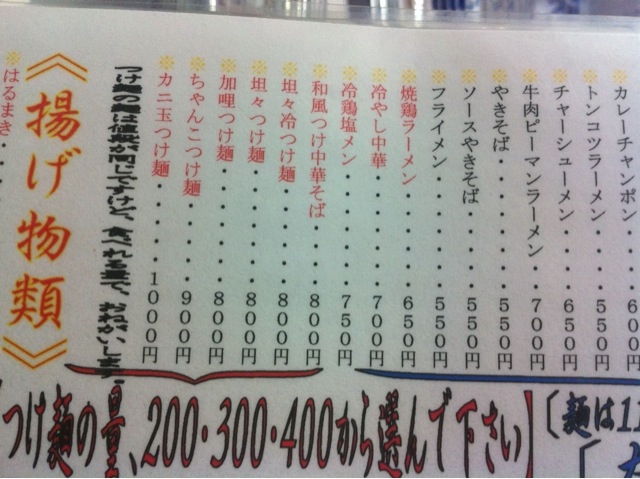 ※カレーチャンポン・・・・600円
※トンコツラーメン・・・・550円
※チャーシューメン・・・・650円
※牛肉ピーマンラーメン・・700円
※やきそば・・・・・・・・550円
※ソースやきそば・・・・・550円
※フライメン・・・・・・・550円
※焼鶏ラーメン・・・・・・650円
※冷やし中華・・・・・・・700円
※冷鶏塩メン・・・・・・・750円
※和風つけ中華そば・・・・800円
※坦々冷つけ麺・・・・・・800円
※坦々つけ麺・・・・・・・800円
※加哩つけ麺・・・・・・・800円
※ちゃんこつけ麺・・・・・900円
※カニ玉つけ麺・・・・・1000円
つけ麺の麺は値段が同じですけど、食べれる量で、おねがいします
《揚げ物類》
※はるまき・・
つけ麺の量、200・300・400から選んで下さい】
〔麺は11